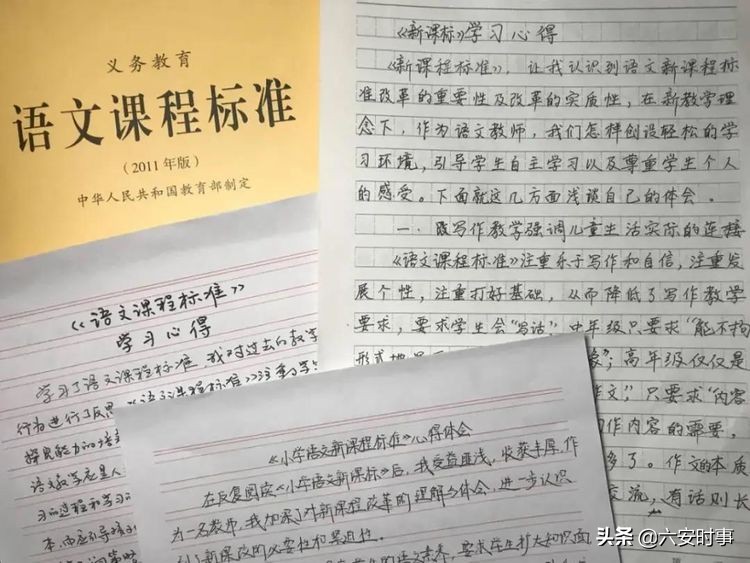 义务教育
语文课程标准
(2011年版)
中华人民共和国教育部制定
《新课标》学习心得
《新课程标准》，让我认识到语文新课程标
准改革的重要性及改革的实质性，在新教学理
念下，作为语文教师，我们怎样创设轻松的学
习环境，引导学生自主学习以及尊重学生个人
的感受。下面就这几方面浅谈自己的体会．
一、既写作教学强调儿童生活实际的连接
《语文课程标准》注重乐于写作和自信，注重发
展个性，注重打好基础，从而降低了写作教学
要求，要求学生会“写话”，中年级只要求“能不拘
形式地
象”；高年级仅仅是
作文”，只要求“内容
作内容的需要，
多了。作文的本质
交流，有话则长
《语文课程标准》
学习心得
学习了语文课程标准，我对过去的教学
行为进行了反思
探究能力的培养
语文教学应是人
习的过程和学习
本，而应引导孩子
《小学语文新课程标准》心得体会
在反复阅读《小学语文新课标》后，我受益匪浅，收获丰厚，作
为一名教师，我加深了对新课程改革的理解与体会，进一步认识
到了新课改的必要性和紧迫性。
的语文素养，要求学生扩大知识面
头条 @六安时事